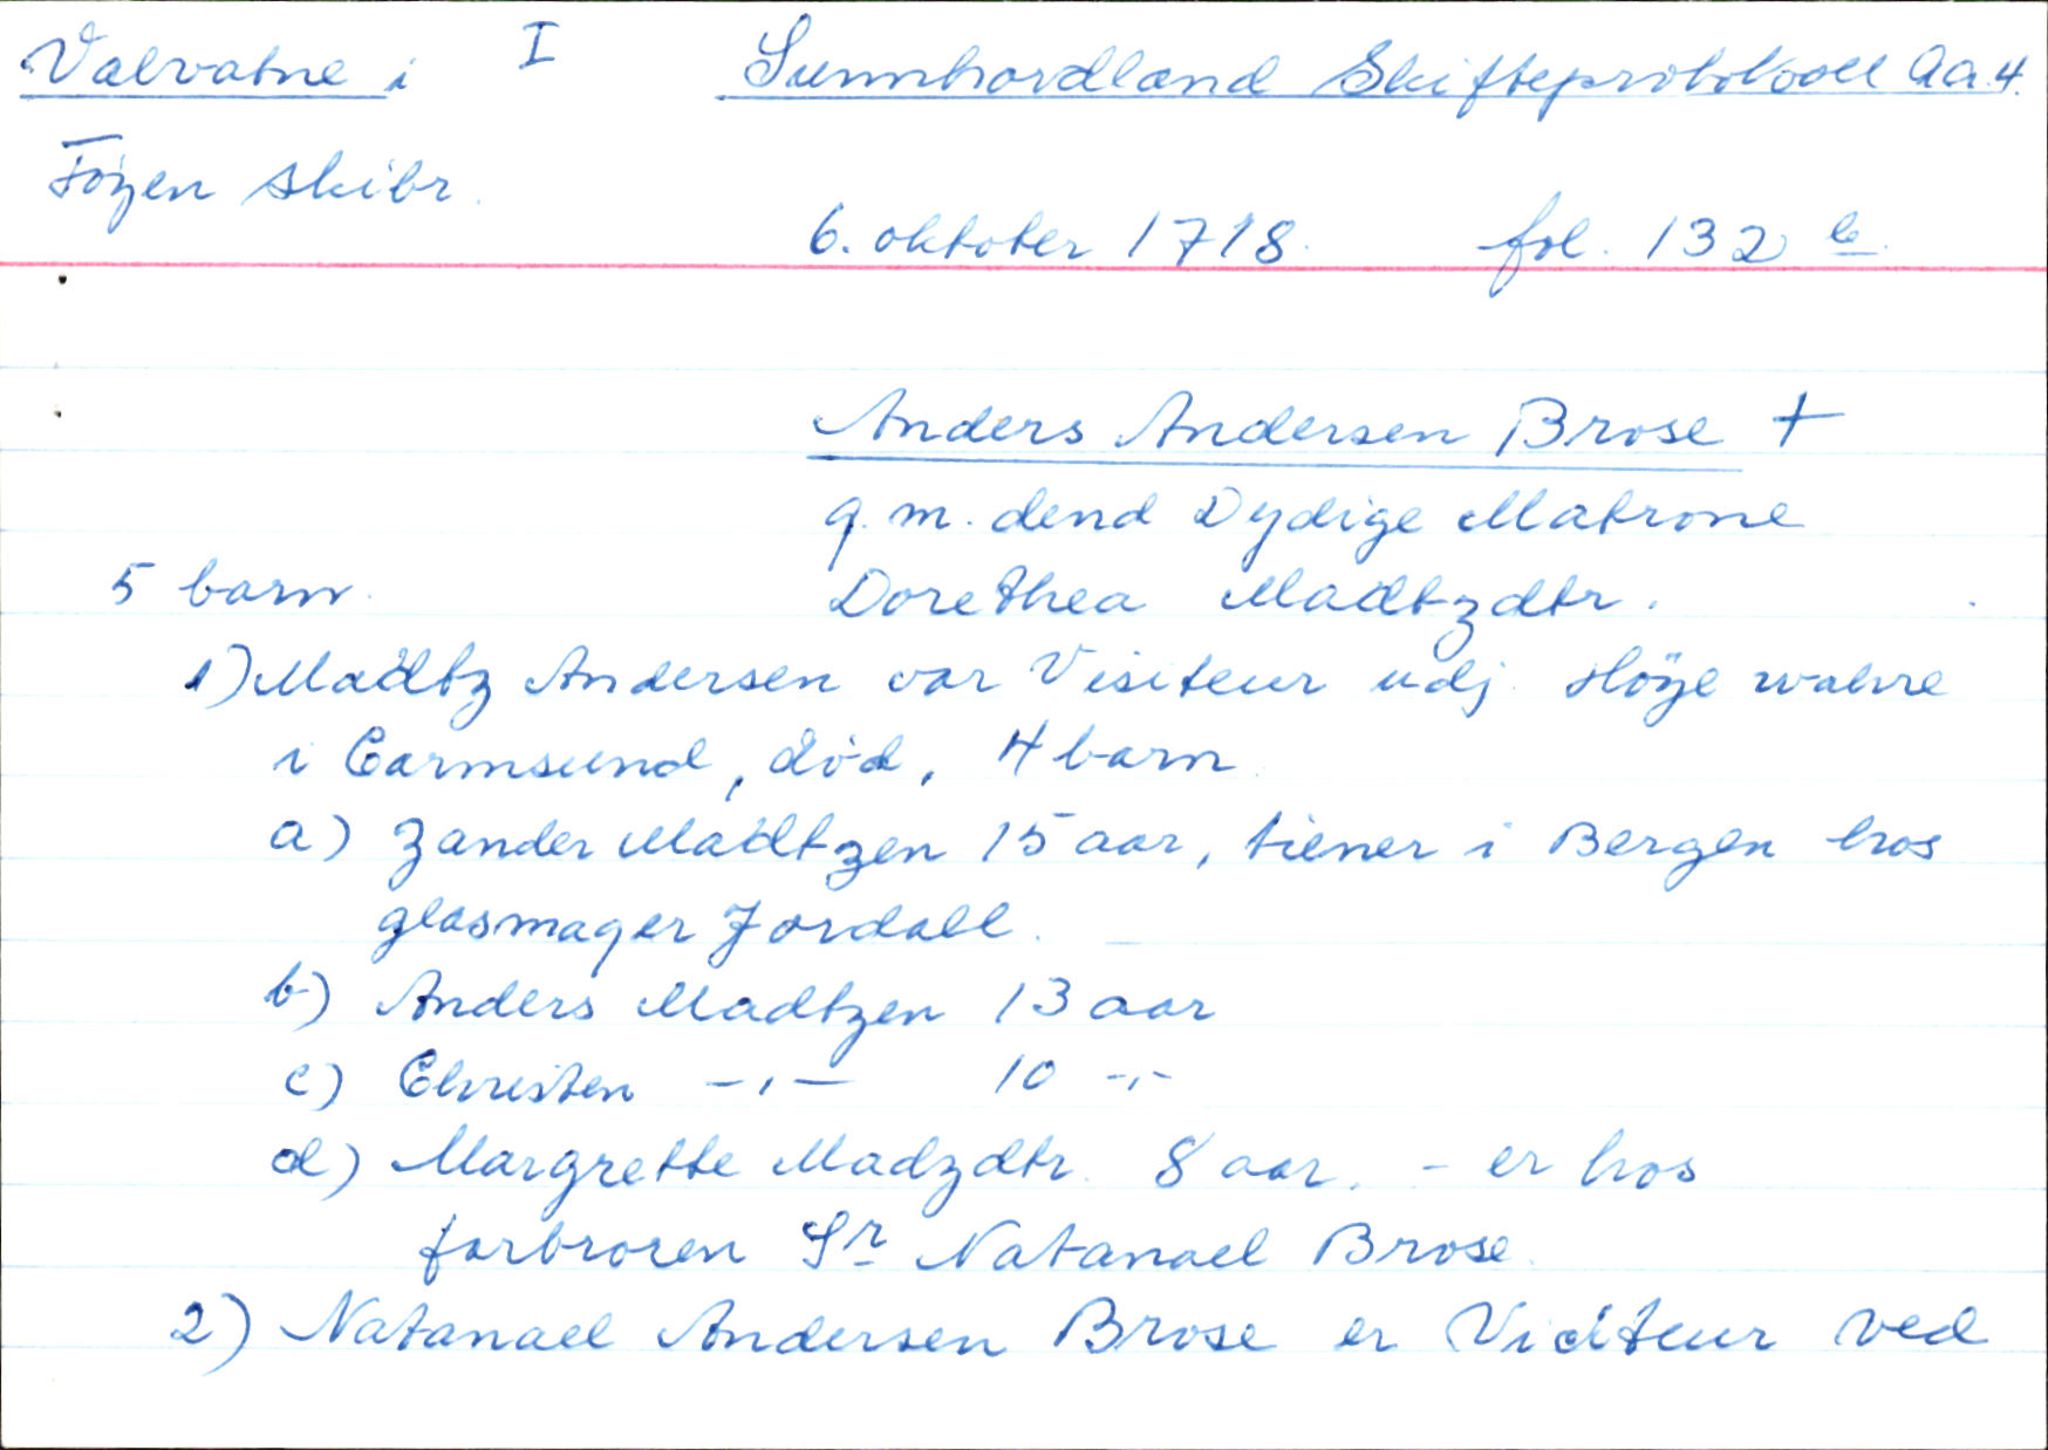 Valvatne i I Sunnhordland Skifteprotokoll Aa.4.
Föyen skibr.
6. oktober 1718. fol. 132 b.
Anders Andersen Brose +
g. m. dend Dydige Matrone
5 barn. Dorethea Madtzdtr.
1) Madtz Andersen var Visiteur udj Höye wahre
i Carmsund, död, 4 barn
a) Zander Madtzen 15 aar, tiener i Bergen hos
glasmager Jordall.
b) Anders Madtzen 13 aar
c) Christen -,- 10 -,-
d) Margrette Madzdtr. 8 aar. - er hos
farbroren Sr Natanael Brose.
2) Natanael Andersen Brose er Viciteur ved